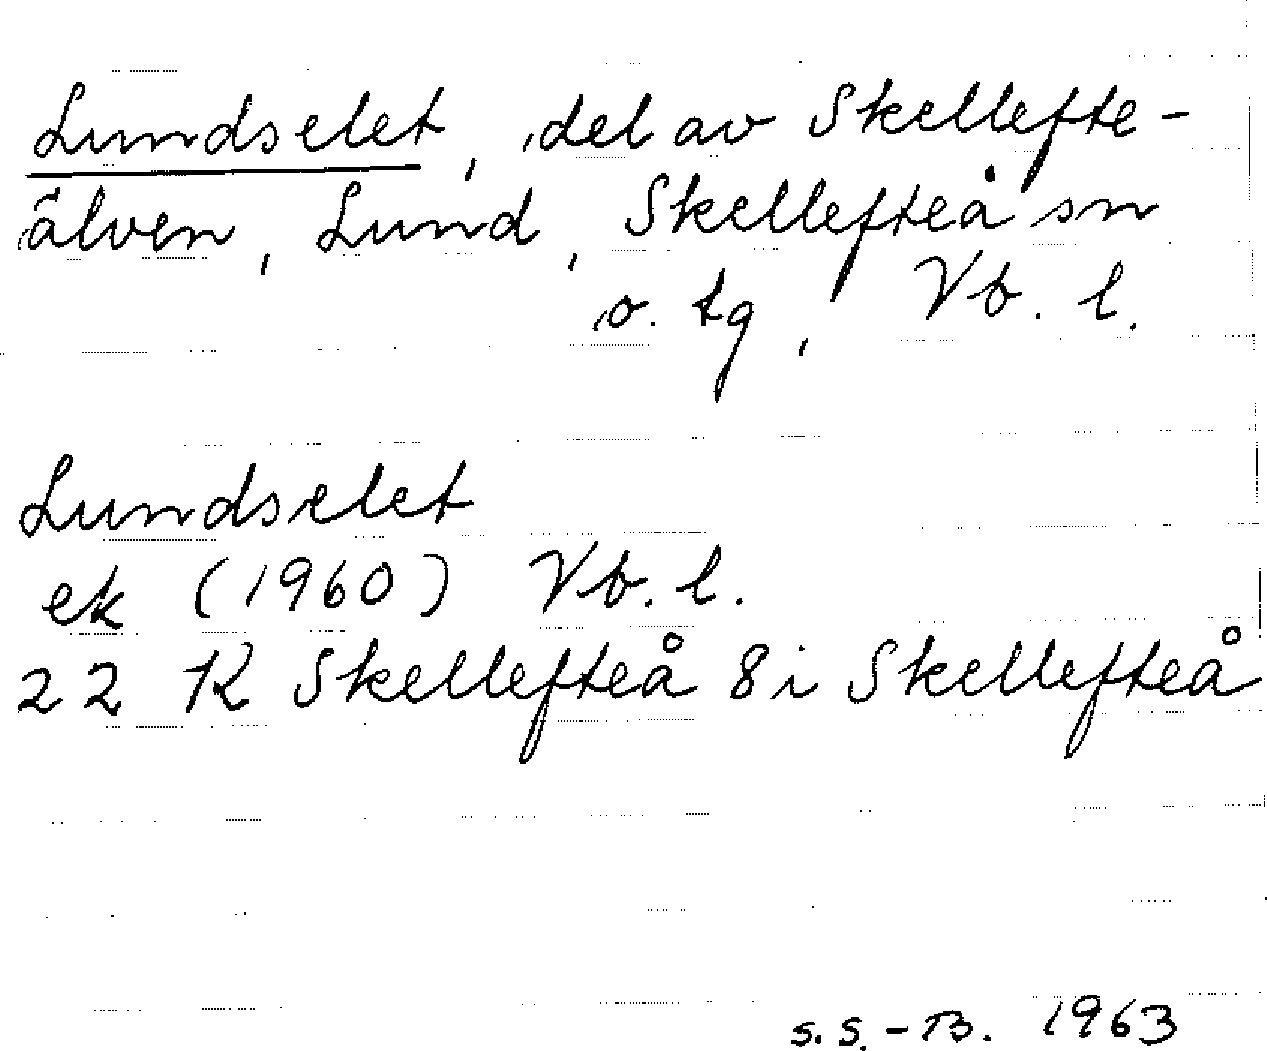 Lundselet, del av Skellefte-
älven, Lund, Skellefteå sn
o. tg, Vb. l.
Lundselet
ek (1960) Vb. l.
22 K Skellefteå 8i Skellefteå
S. S. - B. 1963